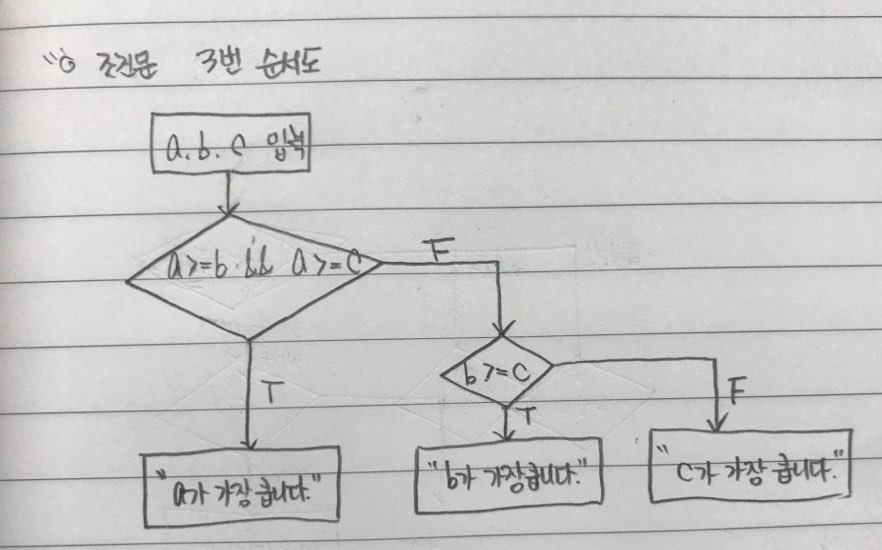 조건문 3번 순서도
a. b. c 입력
a>=b && a>=c
F
b>=c
T
T
F
"a가 가장 큽니다."
"b가 가장큽니다."
"c가 가장 큽니다."